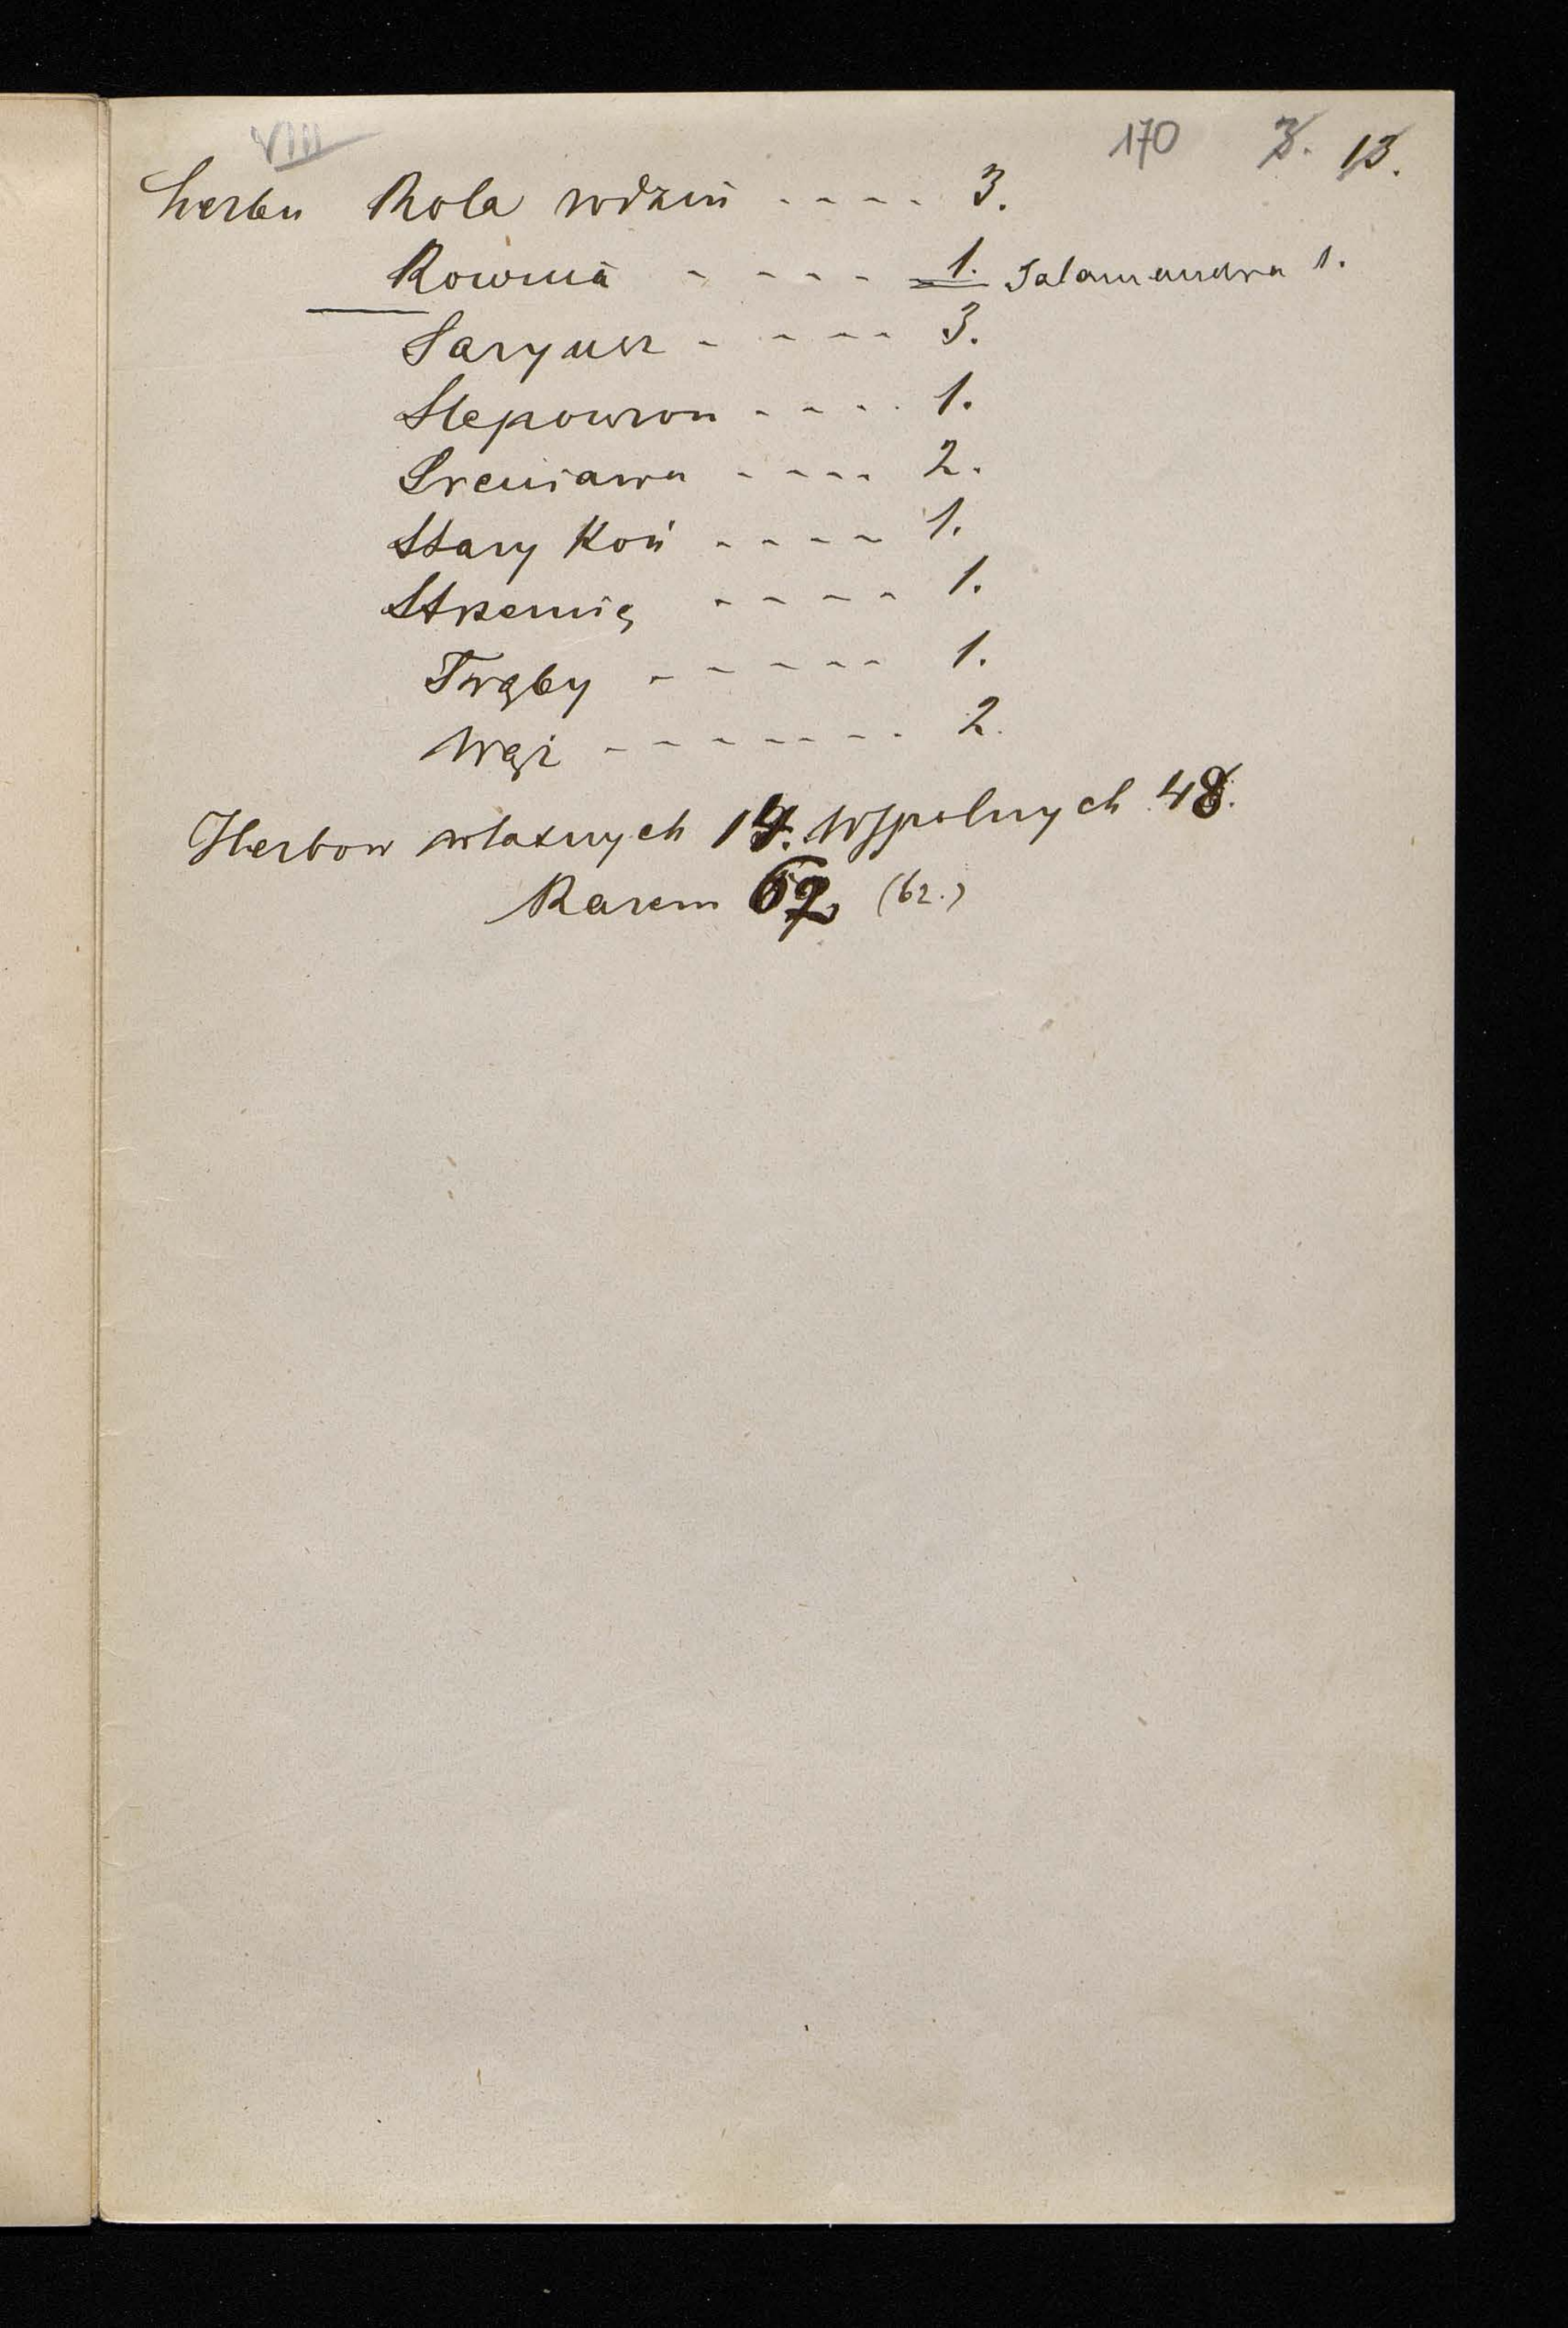 VIII 170 3. 13.
herbu Rola rodzin - - - - 3.
Rownia - - - - 1. Salamandra 1.
Saryusz - - - - 3.
Slepowron - - - - 1.
Sreniawa - - - - 2.
Stary Koń - - - - 1.
Strzemię - - - - 1.
Trąby - - - - - 1.
Wąż - - - - - - - 2.
Herbow własnych 14. Wspolnych 48.
Razem 62 (62.)